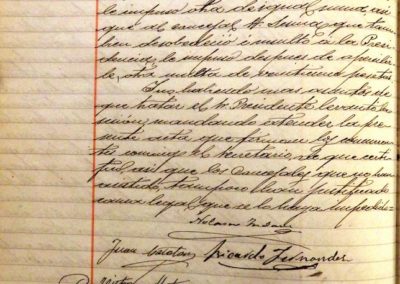 le impuso otra de igual suma, asi
que al concejal Sr. Serna, que tam-
bien desobedeció é insultó a la Presi-
dencia, le impuso despues de apercibir
le, otra multa de veinticinco pesetas
Y no habiendo mas asuntos de
que tratar el Sr. Presidente levantó la
sesión, mandando extender la pre-
sente acta que firman los concurren-
tes conmigo el Secretario, de que certi-
fico, asi que los concejales que no han
asistido, tampoco han justificado
causa legal, que se lo haya impedido.
Juan Ricardo Fernandez